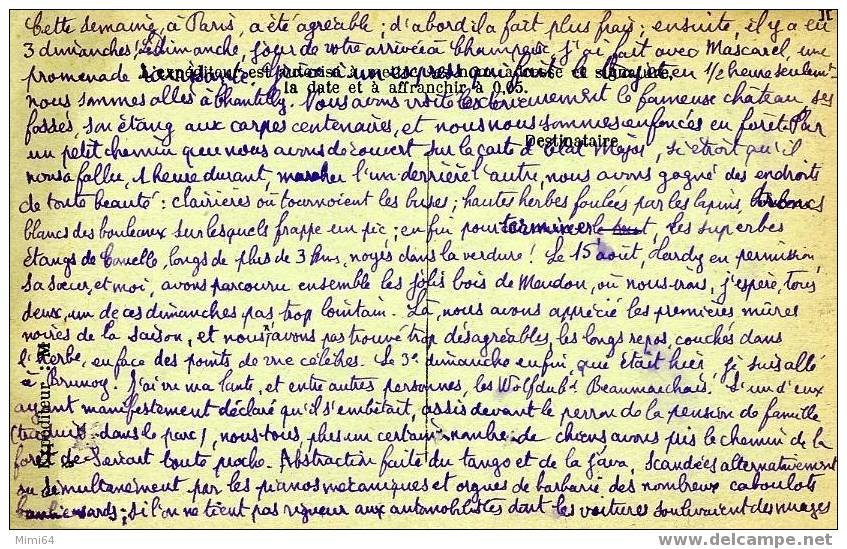 II
Cette semaine, à Paris, a été agréable ; d'abord il a fait plus frais ; ensuite, il y a eu
3 dimanches ! Le dimanche, jour de votre arrivée à Champ, j'ai fait avec Mascarel, une
promenade
L'expéditeur est autorisé à mettre ses nom, adresse et signature,
qui fait le trajet en 1/2 heure seulement
la date et à affranchir à 0,05.
nous sommes allés à Chantilly. Nous avons visité extérieurement le fameuse château, ses
fossés, son étang aux carpes centenaires, et nous nous sommes enfoncés en forêt. Par
Destinataire
un petit chemin que nous avons découvert sur la carte d'Etat Major, si étroit qu'il
nous a fallu, 1 heure durant, marcher l'un derrière l'autre, nous avons gagné des endroits
de toute beauté : clairières où tournoient les buses ; hautes herbes foulées par les lapins, troncs
blancs des bouleaux sur lesquels frappe un pic ; enfin pour terminer, les superbes
étangs de Comelle, longs de plus de 3 kms, noyés dans la verdure ! Le 15 août, Hardy en permission
sa sœur, et moi, avons parcouru ensemble les jolis bois de Meudon, où nous irons, j'espère, tous
deux, un de ces dimanches pas trop lointain. Là, nous avons apprécié les premières mûres
noires de la saison, et nous n'avons pas trouvé trop désagréables, les longs repos, couchés dans
l'herbe, en face des points de vue célèbres. Le 3e dimanche enfin, que était hier, je suis allé
à Brunoy. J'ai vu ma tante, et entre autres personnes, les Beaumarchais. L'un d'eux
ayant manifestement déclaré qu'il s'embêtait, assis devant le perron de la pension de famille
(dans le parc), nous tous, plus un certain nombre de chiens avons pris le chemin de la
forêt de Sénart toute proche. Abstraction faite du tango et de la java, scandées alternativement
ou simultanément par les pianos mécaniques et orgues de barbarie des nombreux caboulots
banlieusards ; si l'on ne tient pas rigueur aux automobilistes dont les voitures soulevaient des nuages
Expéditeur M
Mimi64
www.delcampe.net